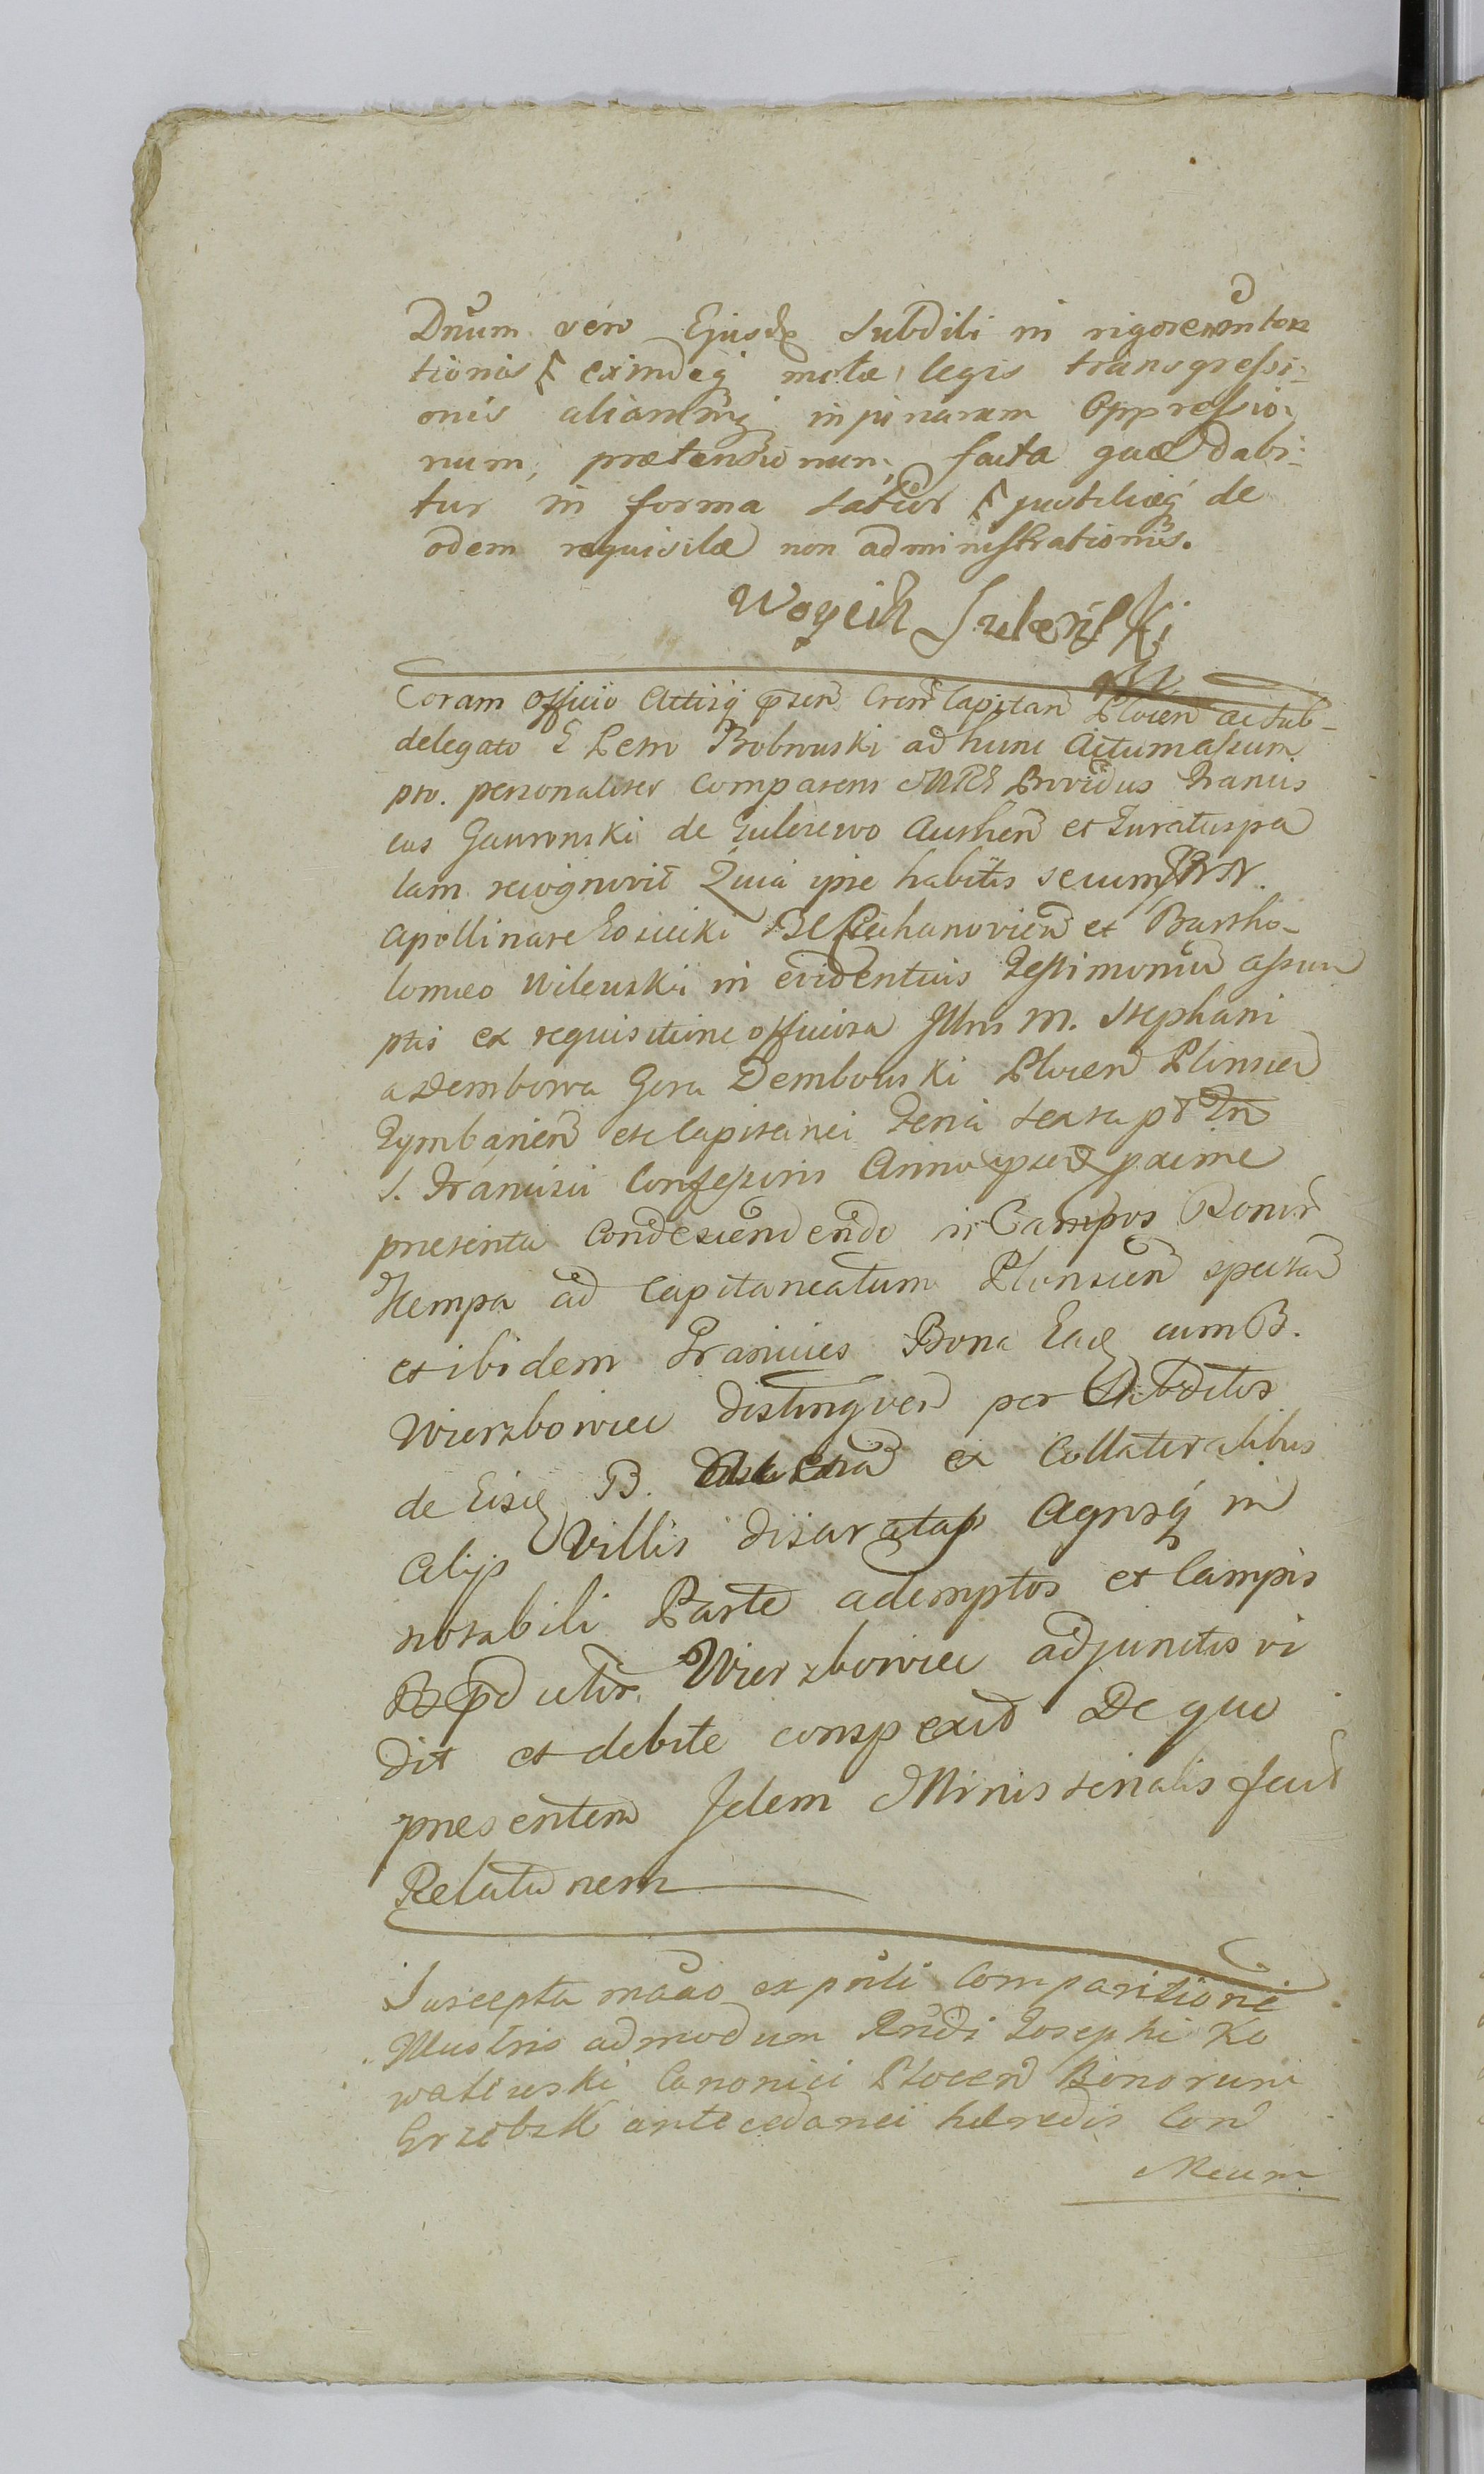 Dnum vero Ejusd subditi in rigorem
tionis et eximdeq motæ legis transgressi-
onis aliarumq injuriarum Oppressio
num, prætensionum, facta quæ dabi-
tur in forma latior et justitiæq de
odem requisitæ non administrationis.
Woyciech
Coram Officio Actisq pnten Cren Capitan Plocen ac sub-
delegato G Petro Bobrowski ad hunc Actum assum
pto. personaliter Comparens Providus Francis
cus Gawronski de Gulczewo Authen et Juratus pa
lam recognovit Quia ipse habitis secum
Apollinare Łosicki Ciechanovien et Bartho-
lomeo Milewski in evidentius Testimonium assum
ptis ex requisitione officiosa Illris M. Stephani
a Dembowa Gora Dembowski Plocen Plonscen
Tymbarien etc Capitanei Feria sexta
S. Francisci Confessoris Anno proxime
præsenti Condescendendo in Campos Bonor
Kempa ad Capitaneatum Plonscen spectan
et ibidem Granicies Bona cum B.
Wierzbowiec distinguen per Subditos
de B. ex Collateralibus
Alijs Villis disaratas Agrosq in
notabili Parte ademptos et Campis
Wierzbowiec adjunctos vi
dit et debite conspexit De quo
præsentem Idem Ministerialis fecit
Relationem
Suscepta ex parte Comparitione
Illustris admodum Rndi Josephi Ko
walewski Canonici Plocen Bonorum
Grzebsk antecedanei hæredis Con